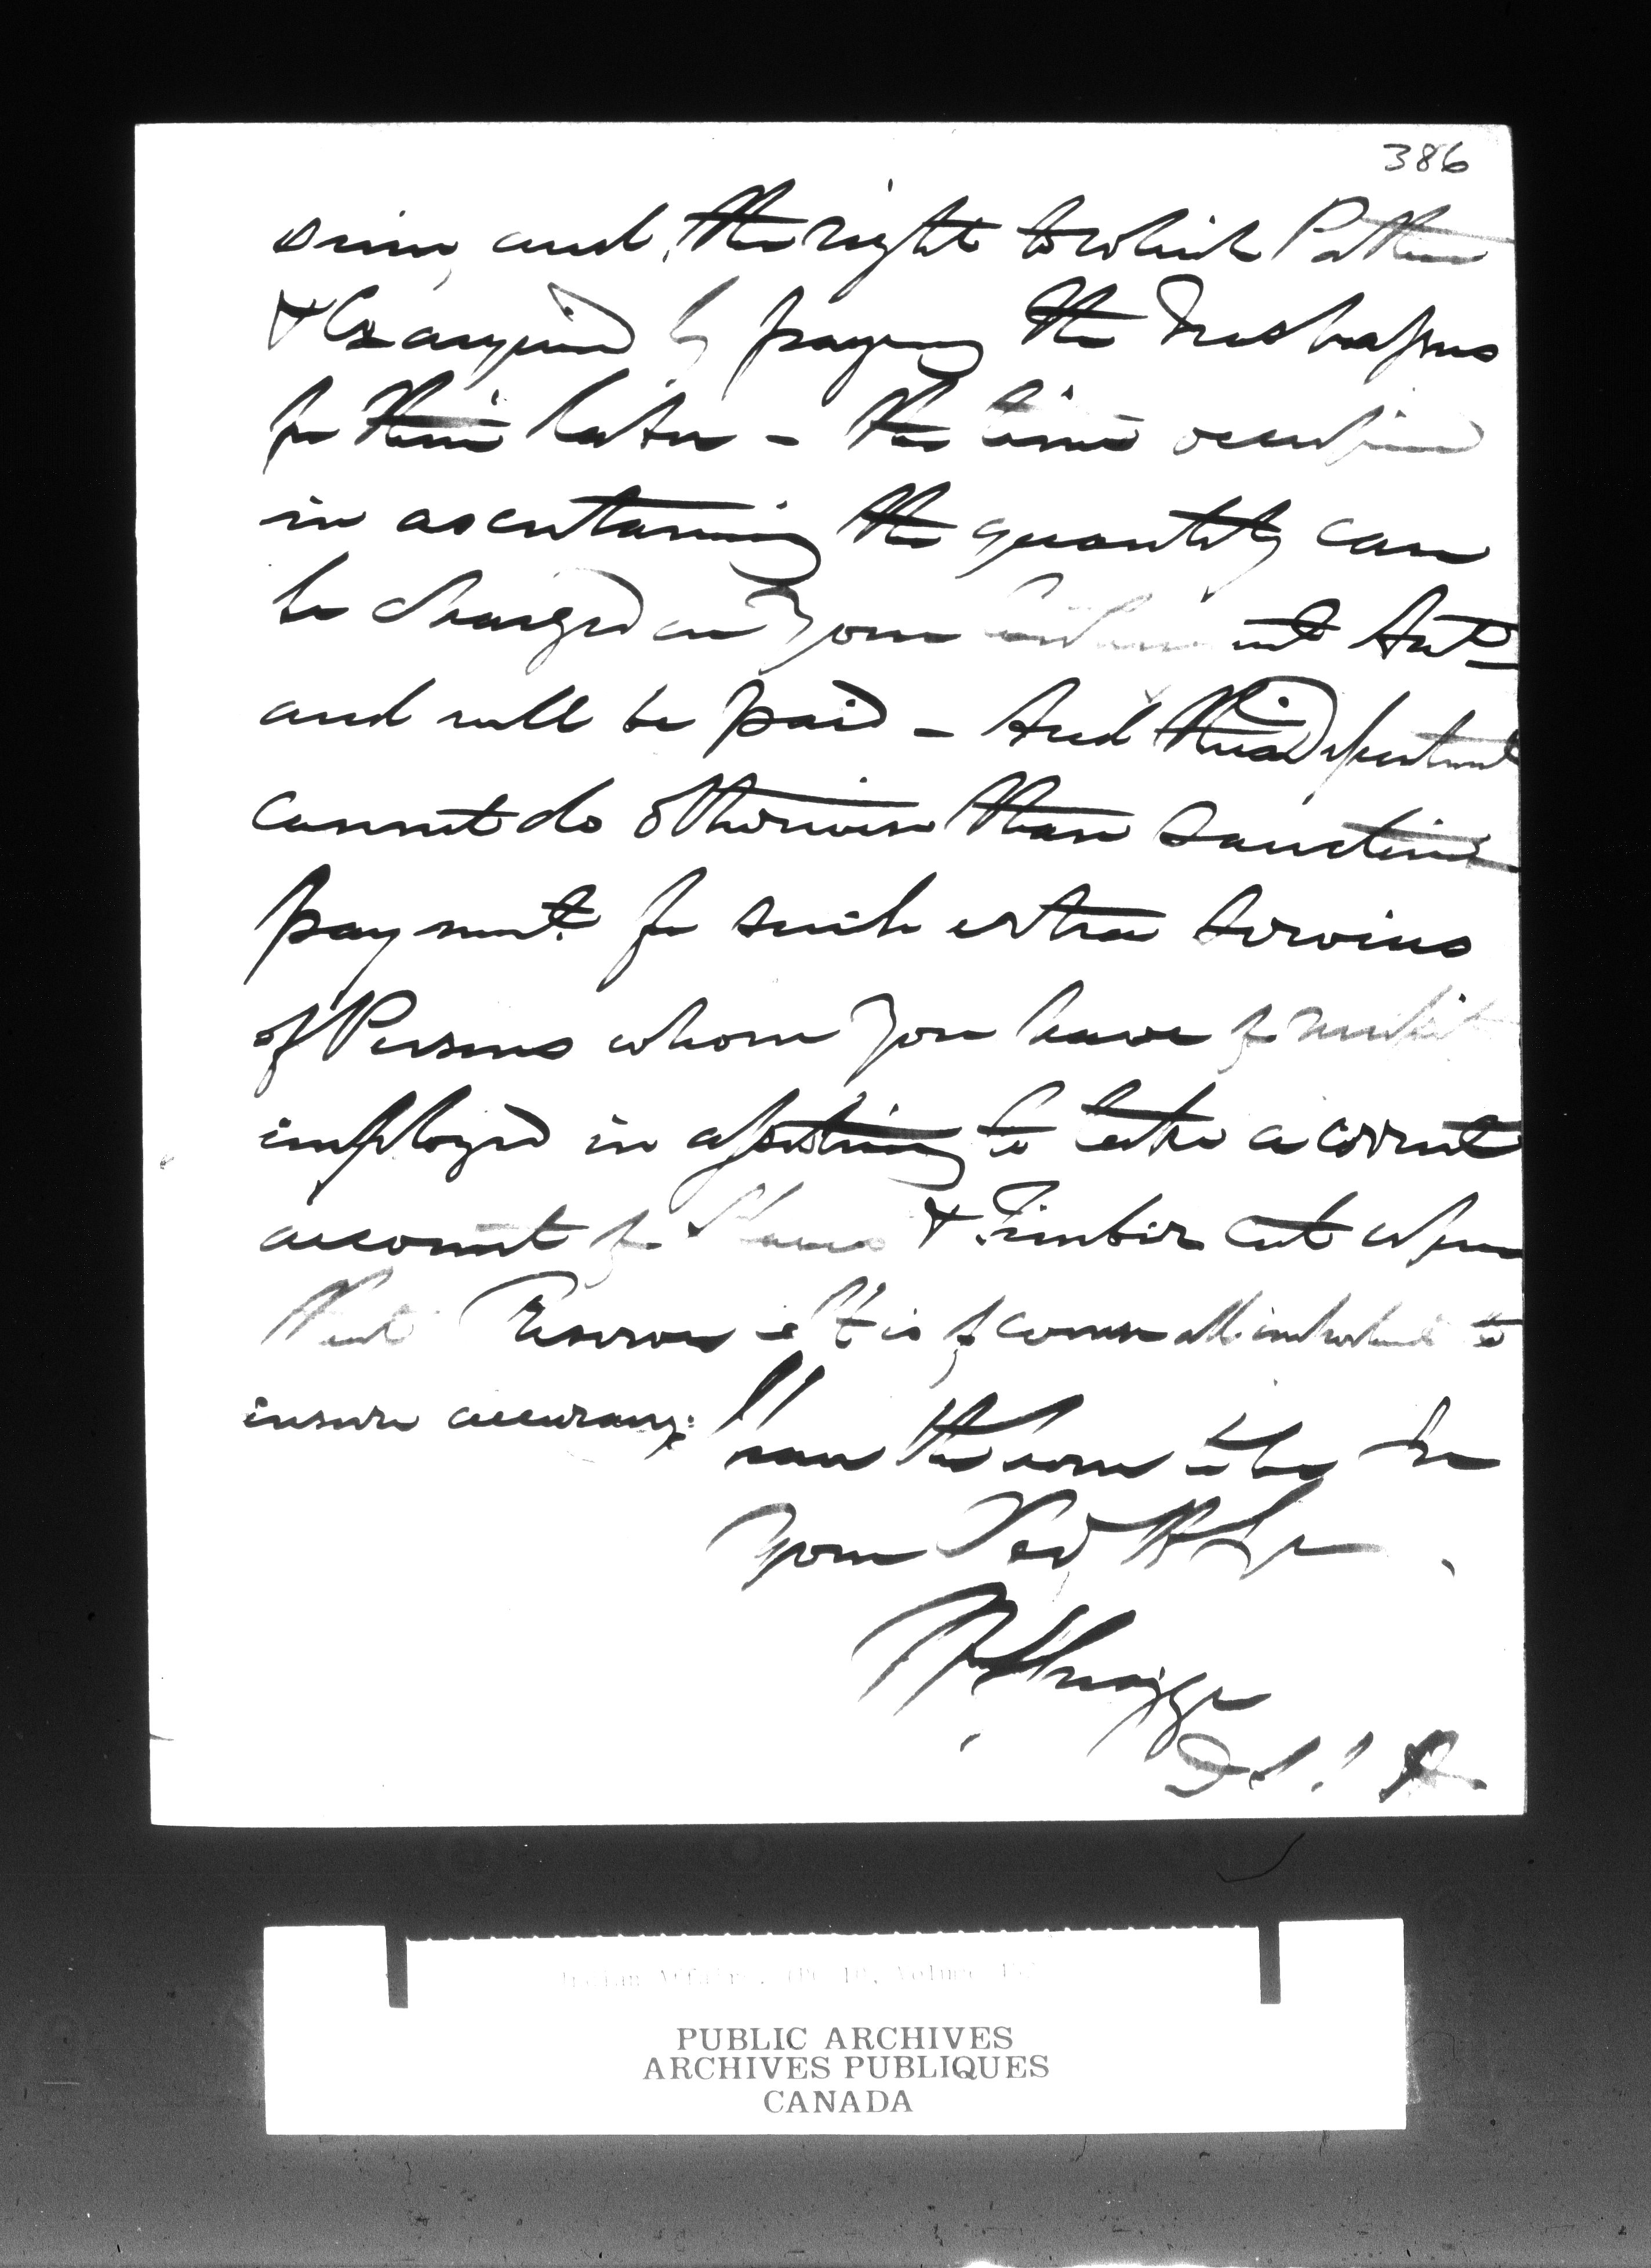 386
and, the right to which
& Co acquired by paying the Trespassers
for their labor - the time occupied
in ascertaining the quantity can
be charged in your Acct
and will be paid - And this Department
cannot do otherwise than sanction
payment for such extra services
of Persons whom you have of
employed in assisting to take a correct
account of & Timber cut upon
that Reserve - It is of course all important to
insure accuracy.
I have the honor to be Sir
Your Obed
D S I A
PUBLIC ARCHIVES
ARCHIVES PUBLIQUES
CANADA